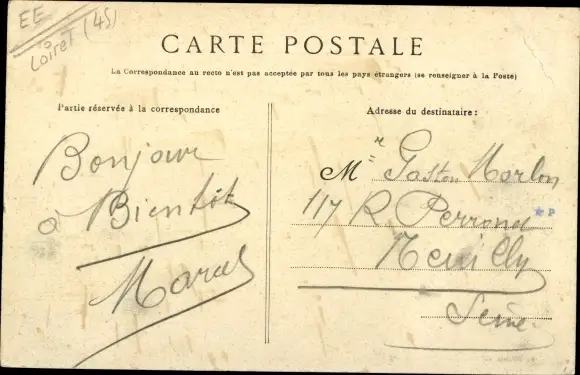 EE
Loiret (45)
CARTE POSTALE
La Correspondance au recto n'est pas acceptée par tous les pays étrangers (se renseigner à la Poste)
Partie réservée à la correspondance
Bonjour
à Bientôt
Marcel
Adresse du destinataire :
Mr Gaston Marlon
117 R Perronet
Neuilly
Seine